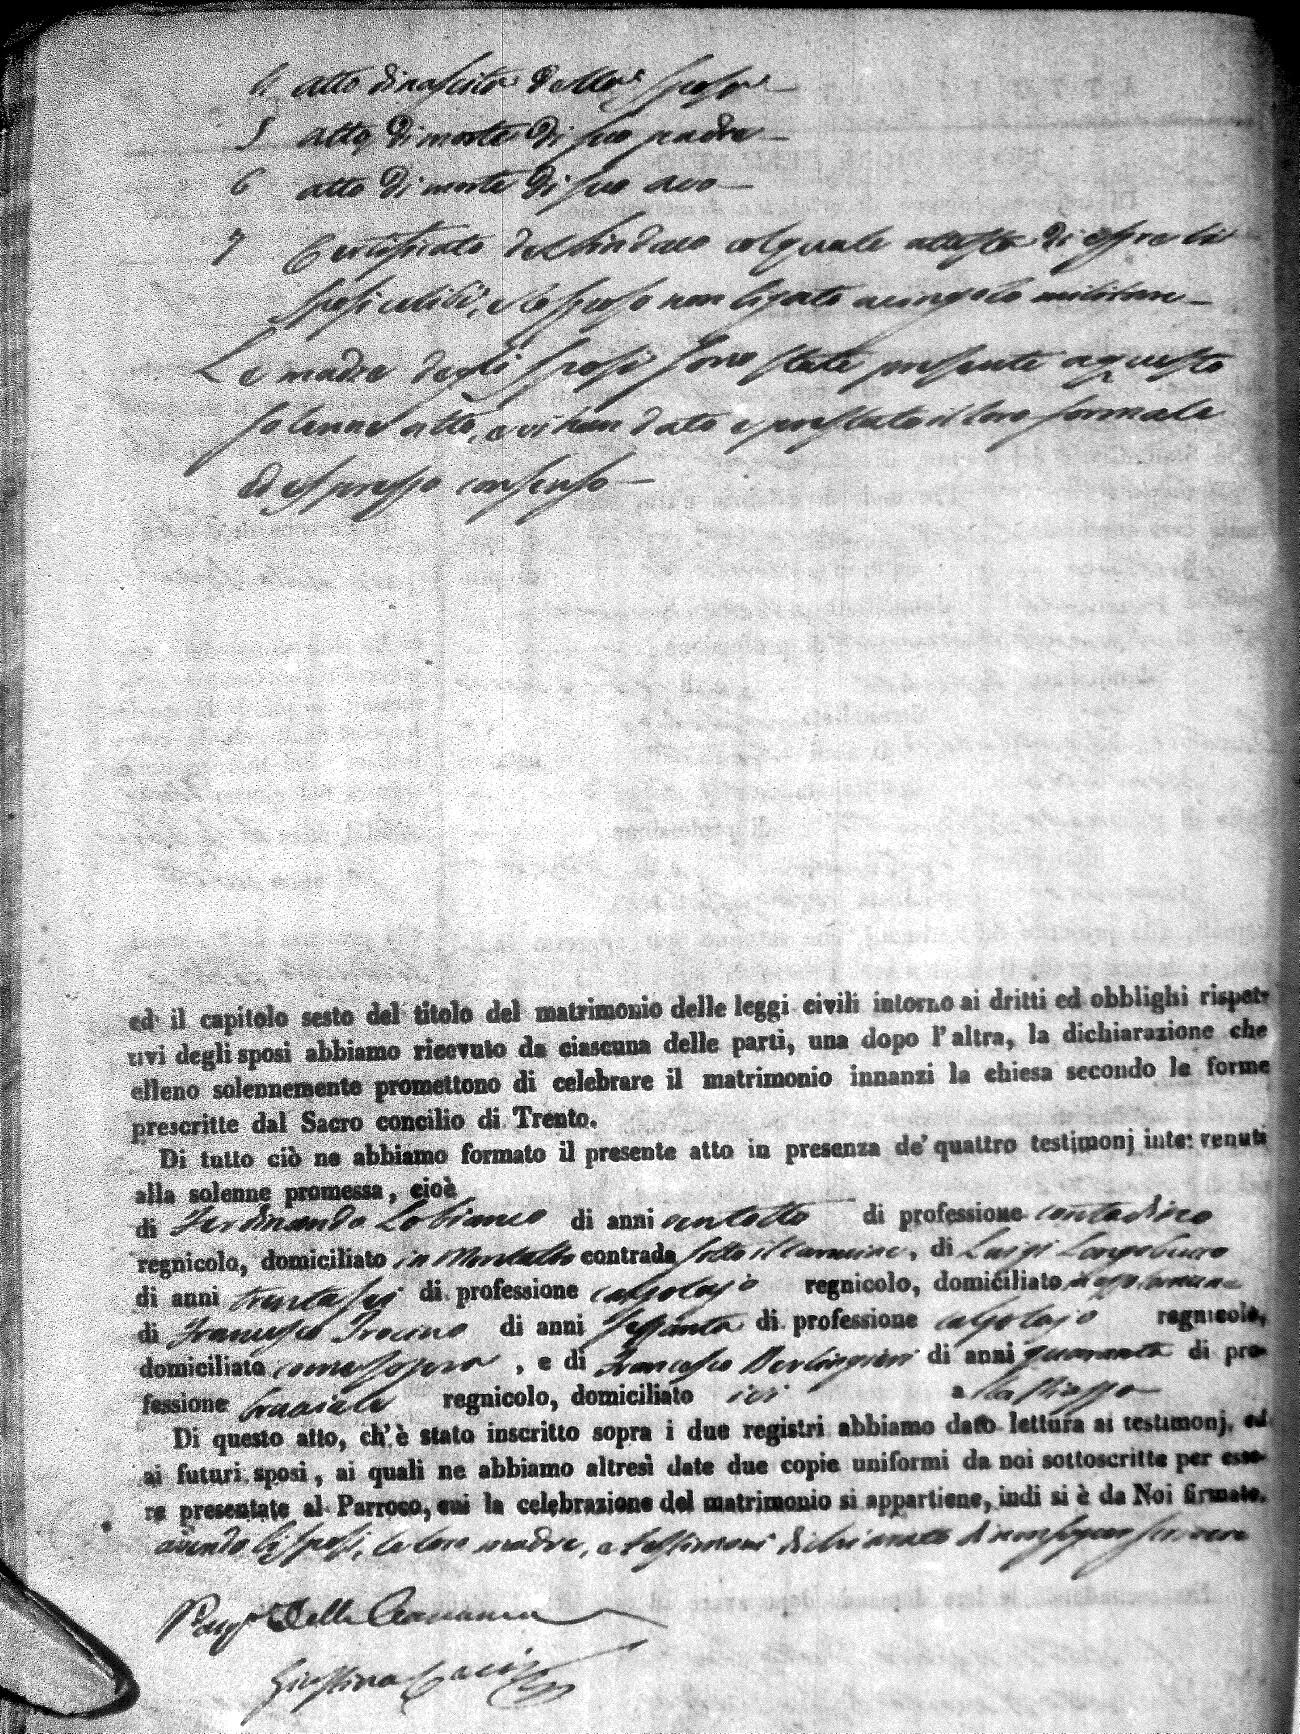 4 atto di nascita della sposa
5 atto di morte di suo padre
6 atto di morte di suo avo
7 Certificato del Sindaco col quale attesta di essere li
sposi celibi, e lo sposo non ligato a cingolo militare
Le madre degli sposi sono state presente a questo
solenne atto, e vi han dato e prestato il loro formale
ed espresso consenso
ed il capitolo sesto del titolo del matrimonio delle leggi civili intorno ai dritti ed obblighi rispet-
tivi degli sposi abbiamo ricevuto da ciascuna delle parti, una dopo l'altra, la dichiarazione che
elleno solennemente promettono di celebrare il matrimonio innanzi la chiesa secondo le forme
prescritte dal Sacro concilio di Trento.
Di tutto ciò ne abbiamo formato il presente atto in presenza de' quattro testimonj intervenuti
alla solenne promessa, cioè
di Ferdinando Lobianco di anni ventotto di professione contadino
regnicolo, domiciliato in Montalto contrada sotto il Carmine, di Luigi Longobucco
di anni trentasei di professione calzolajo regnicolo, domiciliato
di Francesco Trocino di anni sessanta di professione calzolajo regnicolo,
domiciliato come sopra, e di Francesco Berlingieri di anni quaranta di pro-
fessione bracciale regnicolo, domiciliato ivi a la Piazza
Di questo atto, ch'è stato inscritto sopra i due registri abbiamo dato lettura ai testimonj, ed
ai futuri sposi, ai quali ne abbiamo altresì date due copie uniformi da noi sottoscritte per esse-
re presentate al Parroco, cui la celebrazione del matrimonio si appartiene, indi si è da Noi firmato,
avendo li sposi, le loro madre, e testimoni dichiarato di non saper scrivere
Delle
Giustino